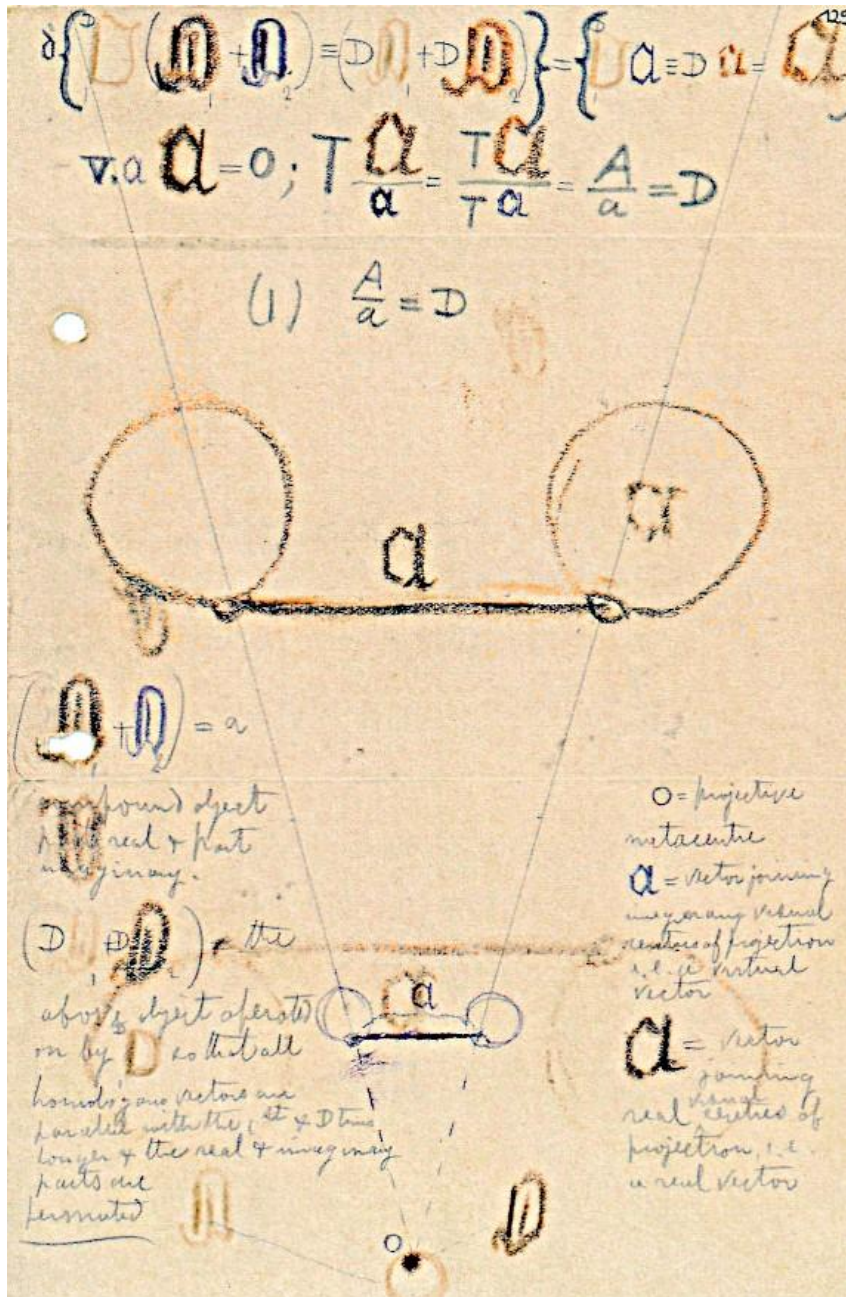 129
δ{D₁(𝔇₁ + 𝔇₂) ≡ (D𝔇₁ + D𝔇₂)} = {D₁ a ≡ D a = a}
V.a a = 0; T a/a = Ta/Ta = A/a = D
(1) A/a = D
a
a
(𝔇₁ + 𝔇₂) = a
compound object
part real & part
imaginary.
(D𝔇₁ + D𝔇₂) = the
above object operated
on by D so that all
homologous vectors are
parallel with the 1st & D times
longer & the real & imaginary
parts are
permuted
O = projective
metacentre
a = vector joining
imaginary visual
centres of projection
i.e. a virtual
vector
a = vector
joining
visual
real centres of
projection, i.e.
a real vector
a
O